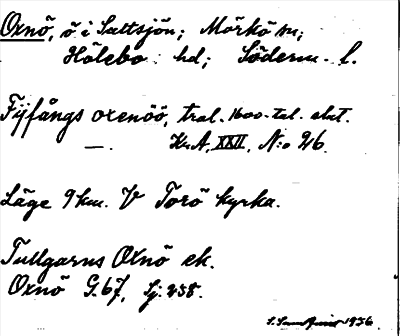 Oxnö, ö i Saltsjön; Mörkö sn;
Hölebo hd; Söderm. l.
Fyfångs oxenöö, trol. 1600-tal. slut.
—. Kr.A. XXII, N:o 26.
Läge 9 km. V Torö kyrka.
Tullgarns Oxnö ek.
Oxnö G.67, Sj: 258.
1936.